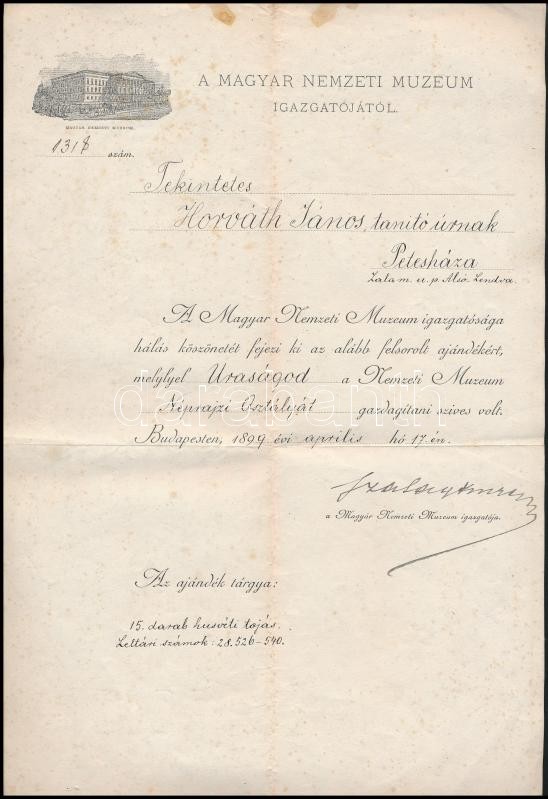 A MAGYAR NEMZETI MUZEUM
IGAZGATÓJÁTÓL.
MAGYAR NEMZETI MUZEUM.
1318 szám.
Tekintetes
Horváth János, tanító úrnak
Petesháza
Zala m. u. p. Alsó Lendva.
A Magyar Nemzeti Muzeum igazgatósága
hálás köszönetét fejezi ki az alább felsorolt ajándékért,
melylyel Uraságod a Nemzeti Muzeum
Néprajzi Osztályát gazdagítani szives volt.
Budapesten, 1899 évi április hó 17-én.
darabanth
a Magyar Nemzeti Muzeum igazgatója.
Az ajándék tárgya:
15. darab husvéti tojás.
Lettári számok: 28.526-540.